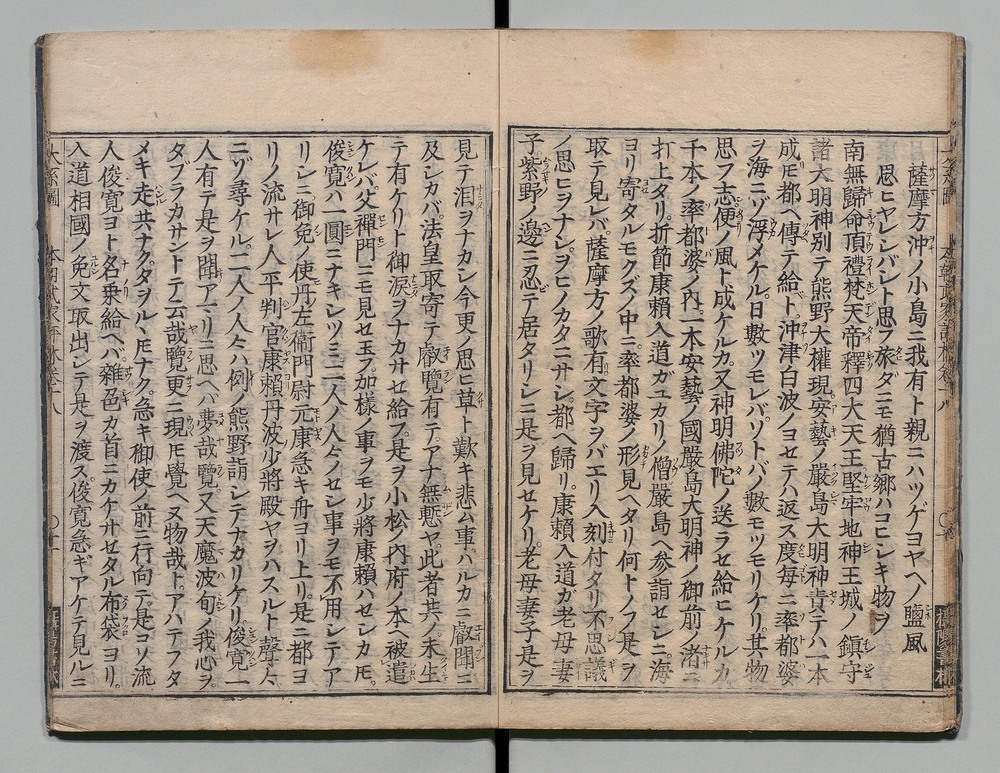 薩摩方沖ノ小島ニ我有ト親ニハツゲヨヤヘノ鹽風
思ヒヤレシバシト思フ旅ダニモ猶古郷ハコヒシキ物ヲ
南無歸命頂禮梵天帝釋四大天王堅牢地神王城ノ鎮守
諸大明神別テ熊野大權現安藝ノ嚴島大明神責テハ一本
成𪜈都ヘ傳テ給ヘト沖津白波ノヨセテハ返ス度毎ニ率都婆
ヲ海ニゾ浮メケル日數ツモレバソトバノ數モツモリケリ其物
思フ志便ノ風ト成ケルカ又神明佛陀ノ送ラセ給ヒケルカ
千本ノ率都婆ノ内一本安藝ノ國嚴島大明神ノ御前ノ渚ニ
打上タリ折節康賴入道ガユカリノ僧嚴島ヘ參詣セシニ海
ヨリ寄タルモクズノ中ニ率都婆ノ形見ヘタリ何トノフ是ヲ
取テ見レバ薩摩方ノ歌有文字ヲバエリ入刻付タリ不思議
ノ思ヒヲナシヲヒノカタニサシ都ヘ歸リ康賴入道ガ老母妻
子紫野ノ邊ニ忍テ居タリシニ是ヲ見セケリ老母妻子是ヲ
見テ泪ヲナカシ今更ノ思ヒ草ト歎キ悲ム事ハルカニ叡聞ニ
及シカバ法皇取寄テ叡覽有テアナ無慙ヤ此者共ノ未生
テ有ケリト御涙ヲナカサセ給フ是ヲ小松ノ内府ノ本ヘ被遣
ケレバ父禪門ニモ見セ玉フ加樣ノ事ヲモ少將康賴ハセシカ𪜈
俊寛ハ一圓ニナキシツミ二人ノ人々ノセシ事ヲモ不用シテア
リシニ御免ノ使丹左衞門尉元康急キ舟ヨリ上リ是ニ都ヨ
リノ流サレ人平判官康賴丹波少將殿ヤヲハスルト聲々
ニゾ尋ケル二人ノ人々ハ例ノ熊野詣シテナカリケリ俊寛一
人有テ是ヲ聞アマリニ思ヘハ夢哉覽又天魔波旬ノ我心ヲ
タブラカサントテ云哉覽更ニ現𪜈覺ヘヌ物哉トアハテフタ
メキ走共ナクタヲルヽ𪜈ナク急キ御使ノ前ニ行向テ是コソ流
人俊寛ヨト名乗給ヘハ雜色カ首ニカケサセタル布袋ヨリ
入道相國ノ免文取出シテ是ヲ渡ス俊寛急ギアケテ見ルニ